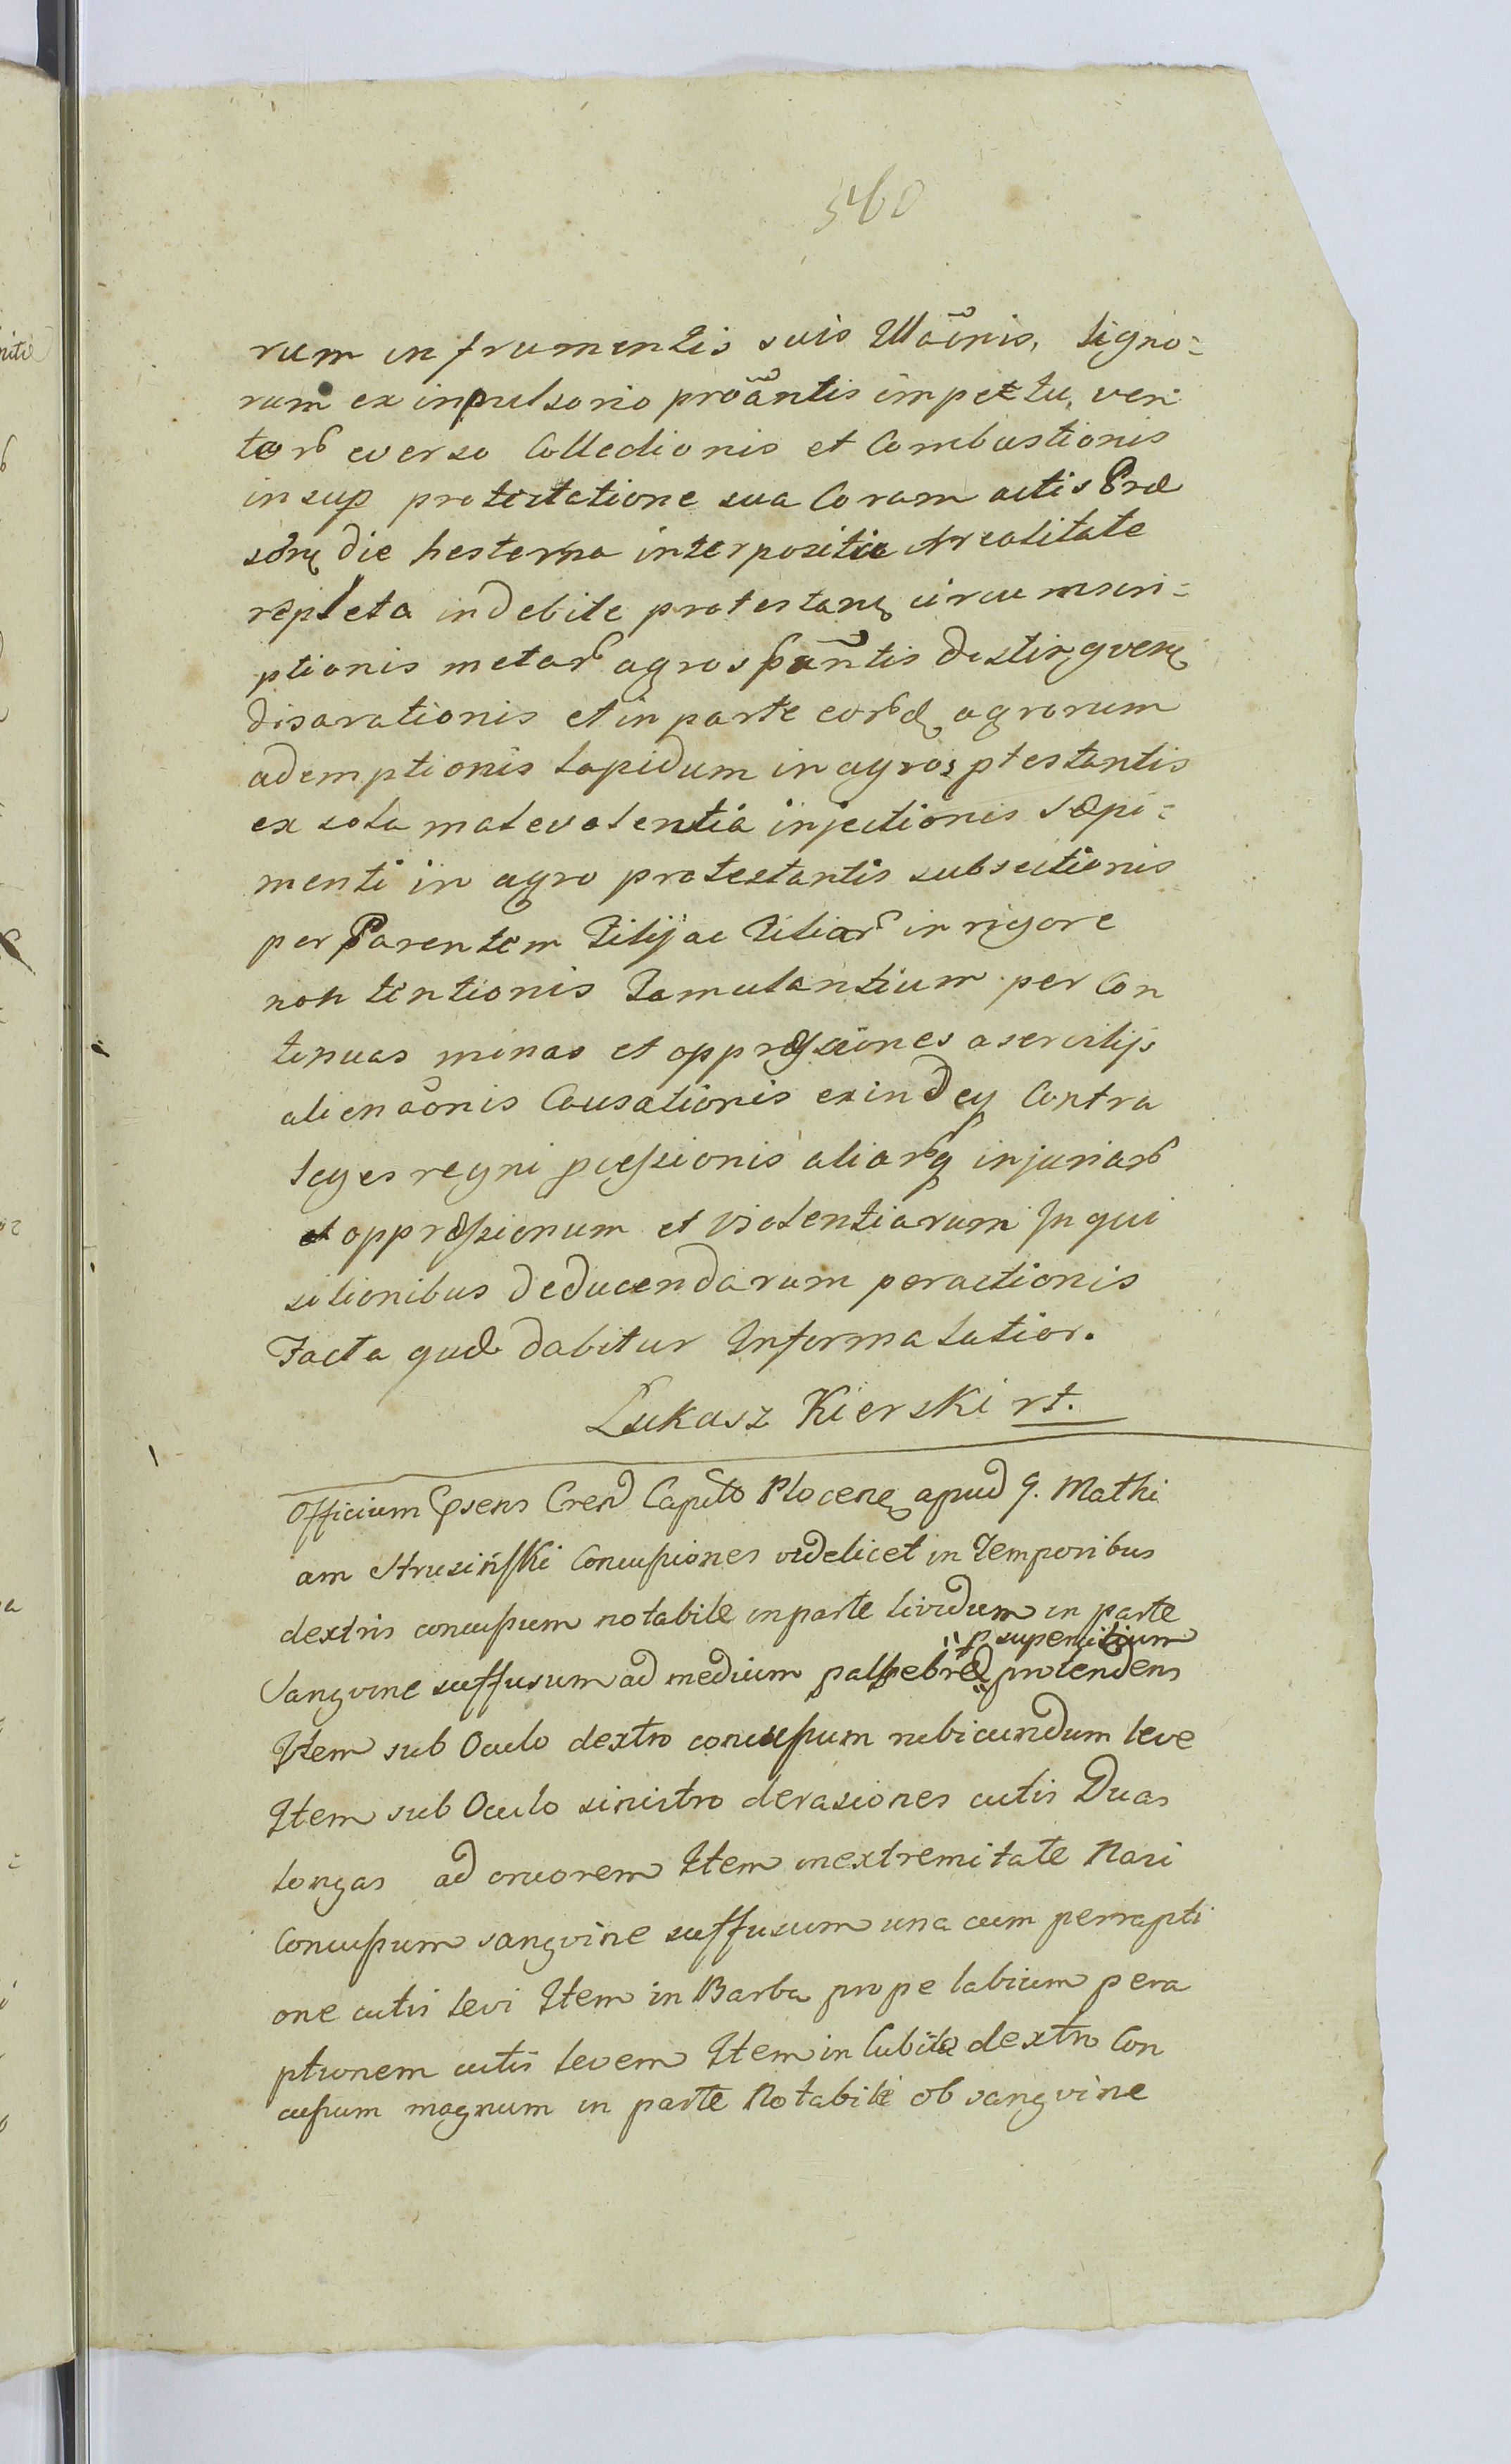 560
rum in frumentis suis Illaõnis, ligno=
rum ex inpulsorio proãntis impetu, ven
torb everso Collectionis et Combustionis
insup protestatione sua Coram actis Præ
die hesterna interposita Arealitate
repleta indebite protestanę circumscri=
ptionis metarb agros pãntis distingvenę
disarationis et in parte agrorum
ademptionis lapidum in agros ptestantis
ex sola malevolentia injectionis Sæpi=
menti in agro protestantis subsectionis
per Parentem Filij ac Filiarb in rigore
non tentionis Famulantium per Con
tinuas minas et oppressiones a servitijs
alienãonis Causationis exindeq Contra
leges regni pcessionis aliarbq injuriarb
et oppressionum et violentiarum Inqui
sitionibus deducendarum peractionis
Facta quæ dabitur Informa latior.
Łukasz Kierski rt.
Officium Psens Crend Capitlo Plocenę apud G. Mathi
am Strusiński Concussiones videlicet in Temporibus
dextris concussum notabile in parte lividum in parte
" p supercilium
Sangvine suffusum ad medium palpebræ protendens
Item sub Oculo dextro concussum rubicundum leve
Item sub Oculo sinistro derasiones cutis Duas
longas ad cruorem Item in extremitate Nasi
Concussum sangvine suffusum una cum perrapti
one cutis levi Item in Barba prope labium pera
ptionem cutis levem Item in Cubito dextro Con
cussum magnum in parte Notabili ob sangvine